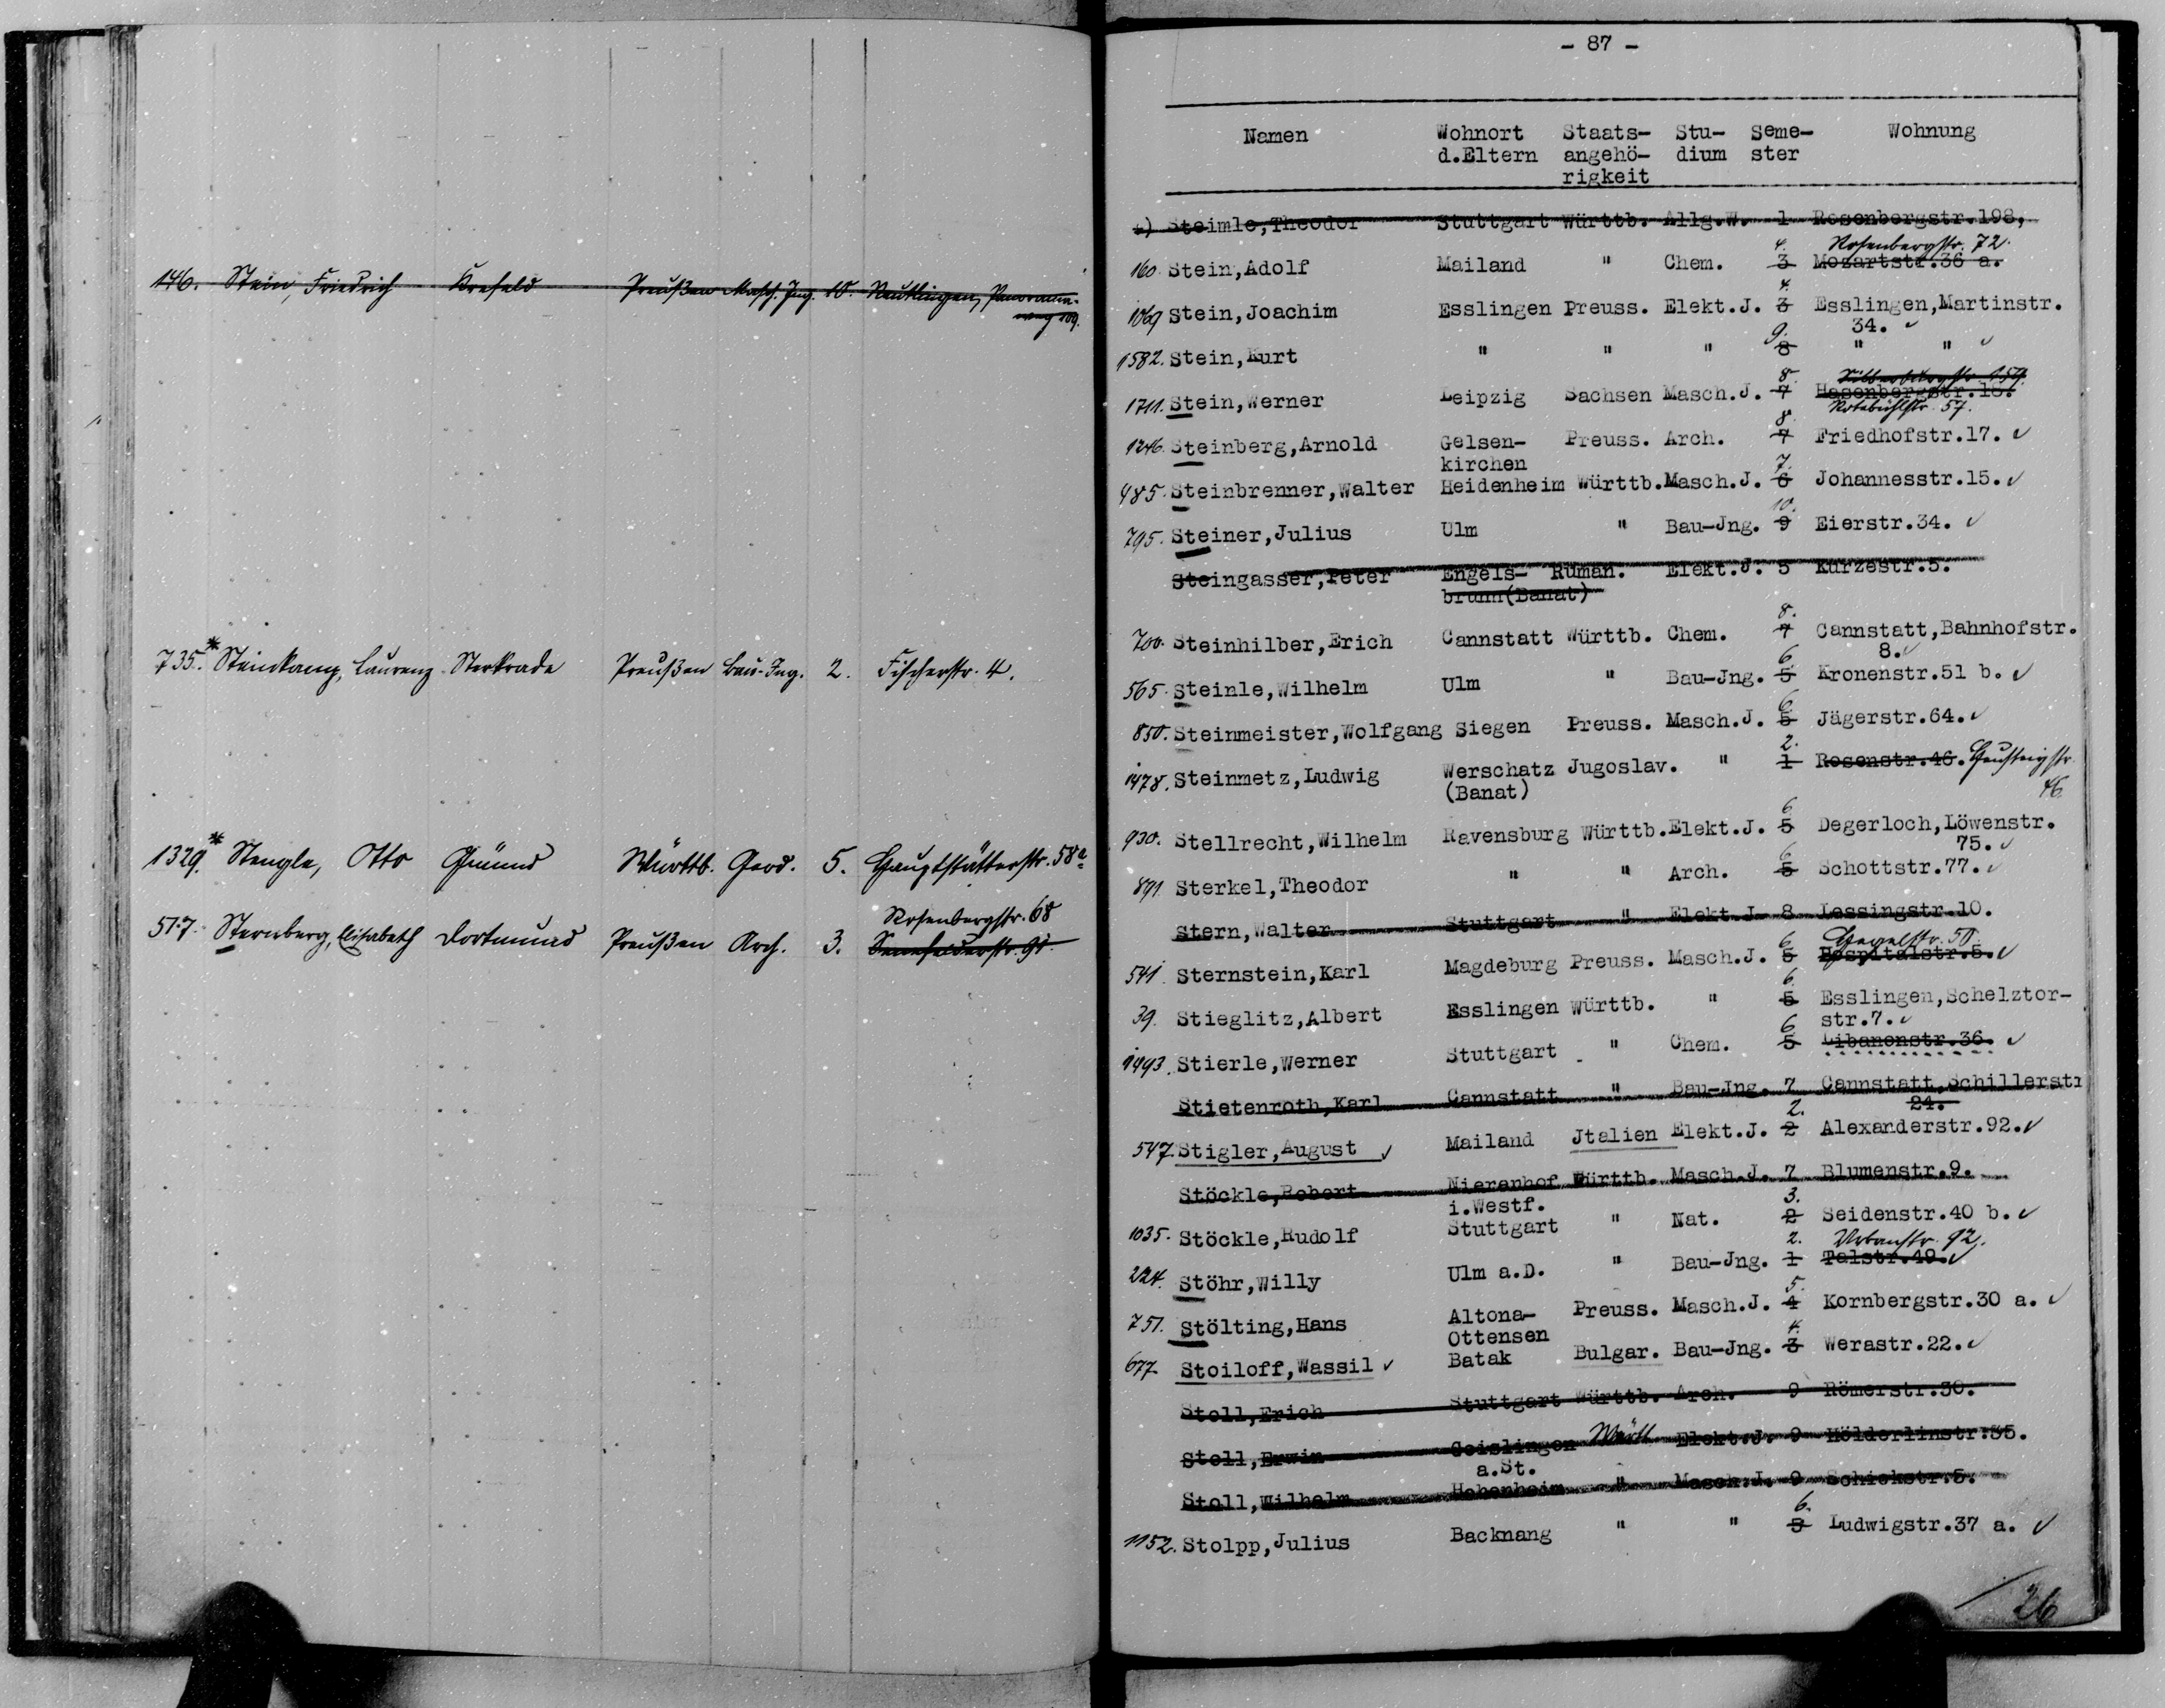 146. Stein, Friedrich Krefeld Preußen Masch. Ing. 10. Reutlingen, Panorama-
weg 109.
735.* Steinkamp, Laurenz Sterkrade Preußen Bau-Ing. 2. Fischerstr. 4.
1329.* Stengle, Otto Gmünd Württb. Geod. 5. Hauptstätterstr. 58a
Rosenbergstr. 68
517. Sternberg, Elisabeth Dortmund Preußen Arch. 3. Senefelderstr. 91.
- 87 -
Namen Wohnort Staats- Stu- Seme- Wohnung
d.Eltern angehö- dium ster
rigkeit
Steimle,Theodor Stuttgart Württb. Allg.W. 1 Rosenbergstr.198,
4. Rosenbergstr. 72.
160. Stein,Adolf Mailand " Chem. 3 Mozartstr.36 a.
4.
1069 Stein,Joachim Esslingen Preuss. Elekt.J. 3 Esslingen,Martinstr.
9. 34. ✓
1582. Stein,Kurt " " " 8 " " ✓
8. Silberburgstr. 159.
1711. Stein,Werner Leipzig Sachsen Masch.J. 7 Hasenbergstr.18.
Rotebühlstr. 57.
8.
1246. Steinberg,Arnold Gelsen- Preuss. Arch. 7 Friedhofstr.17. ✓
kirchen 7.
485. Steinbrenner,Walter Heidenheim Württb.Masch.J. 6 Johannesstr.15. ✓
10.
795. Steiner,Julius Ulm " Bau-Jng. 9 Eierstr.34. ✓
Steingasser,Peter Engels- Rumän. Elekt.J. 5 Kurzestr.5.
brunn(Banat)
8.
700. Steinhilber,Erich Cannstatt Württb. Chem. 7 Cannstatt,Bahnhofstr.
6. 8. ✓
565. Steinle,Wilhelm Ulm " Bau-Jng. 5 Kronenstr.51 b. ✓
6.
850. Steinmeister,Wolfgang Siegen Preuss. Masch.J. 5 Jägerstr.64. ✓
2.
1478. Steinmetz,Ludwig Werschatz Jugoslav. " 1 Rosenstr.46.
(Banat) 46
6
930. Stellrecht,Wilhelm Ravensburg Württb.Elekt.J. 5 Degerloch,Löwenstr.
6 75. ✓
891. Sterkel,Theodor " " Arch. 5 Schottstr.77. ✓
Stern,Walter Stuttgart " Elekt.J. 8 Lessingstr.10.
6. Hegelstr. 50.
541. Sternstein,Karl Magdeburg Preuss. Masch.J. 5 Hospitalstr.5. ✓
6.
39. Stieglitz,Albert Esslingen Württb. " 5 Esslingen,Schelztor-
6 str.7. ✓
1493. Stierle,Werner Stuttgart " Chem. 5 Libanonstr.36. ✓
Stietenroth,Karl Cannstatt " Bau-Jng. 7 Cannstatt,Schillerstr
2. 24.
547. Stigler,August ✓ Mailand Jtalien Elekt.J. 2 Alexanderstr.92. ✓
Stöckle,Robert Nierenhof Württb. Masch.J. 7 Blumenstr.9.
i.Westf. 3.
1035. Stöckle,Rudolf Stuttgart " Nat. 2 Seidenstr.40 b. ✓
2. Urbanstr. 92.
224. Stöhr,Willy Ulm a.D. " Bau-Jng. 1 Talstr.49. ✓
5.
751. Stölting,Hans Altona- Preuss. Masch.J. 4 Kornbergstr.30 a. ✓
Ottensen 4.
677. Stoiloff,Wassil ✓ Batak Bulgar. Bau-Jng. 3 Werastr.22. ✓
Stoll,Erich Stuttgart Württb. Arch. 9 Römerstr.30.
Stoll,Erwin Geislingen Württ Elekt.J. 9 Hölderlinstr.35.
a.St.
Stoll,Wilhelm Hohenheim " Masch.J. 9 Schickstr.5.
6.
1152. Stolpp,Julius Backnang " " 5 Ludwigstr.37 a. ✓
26